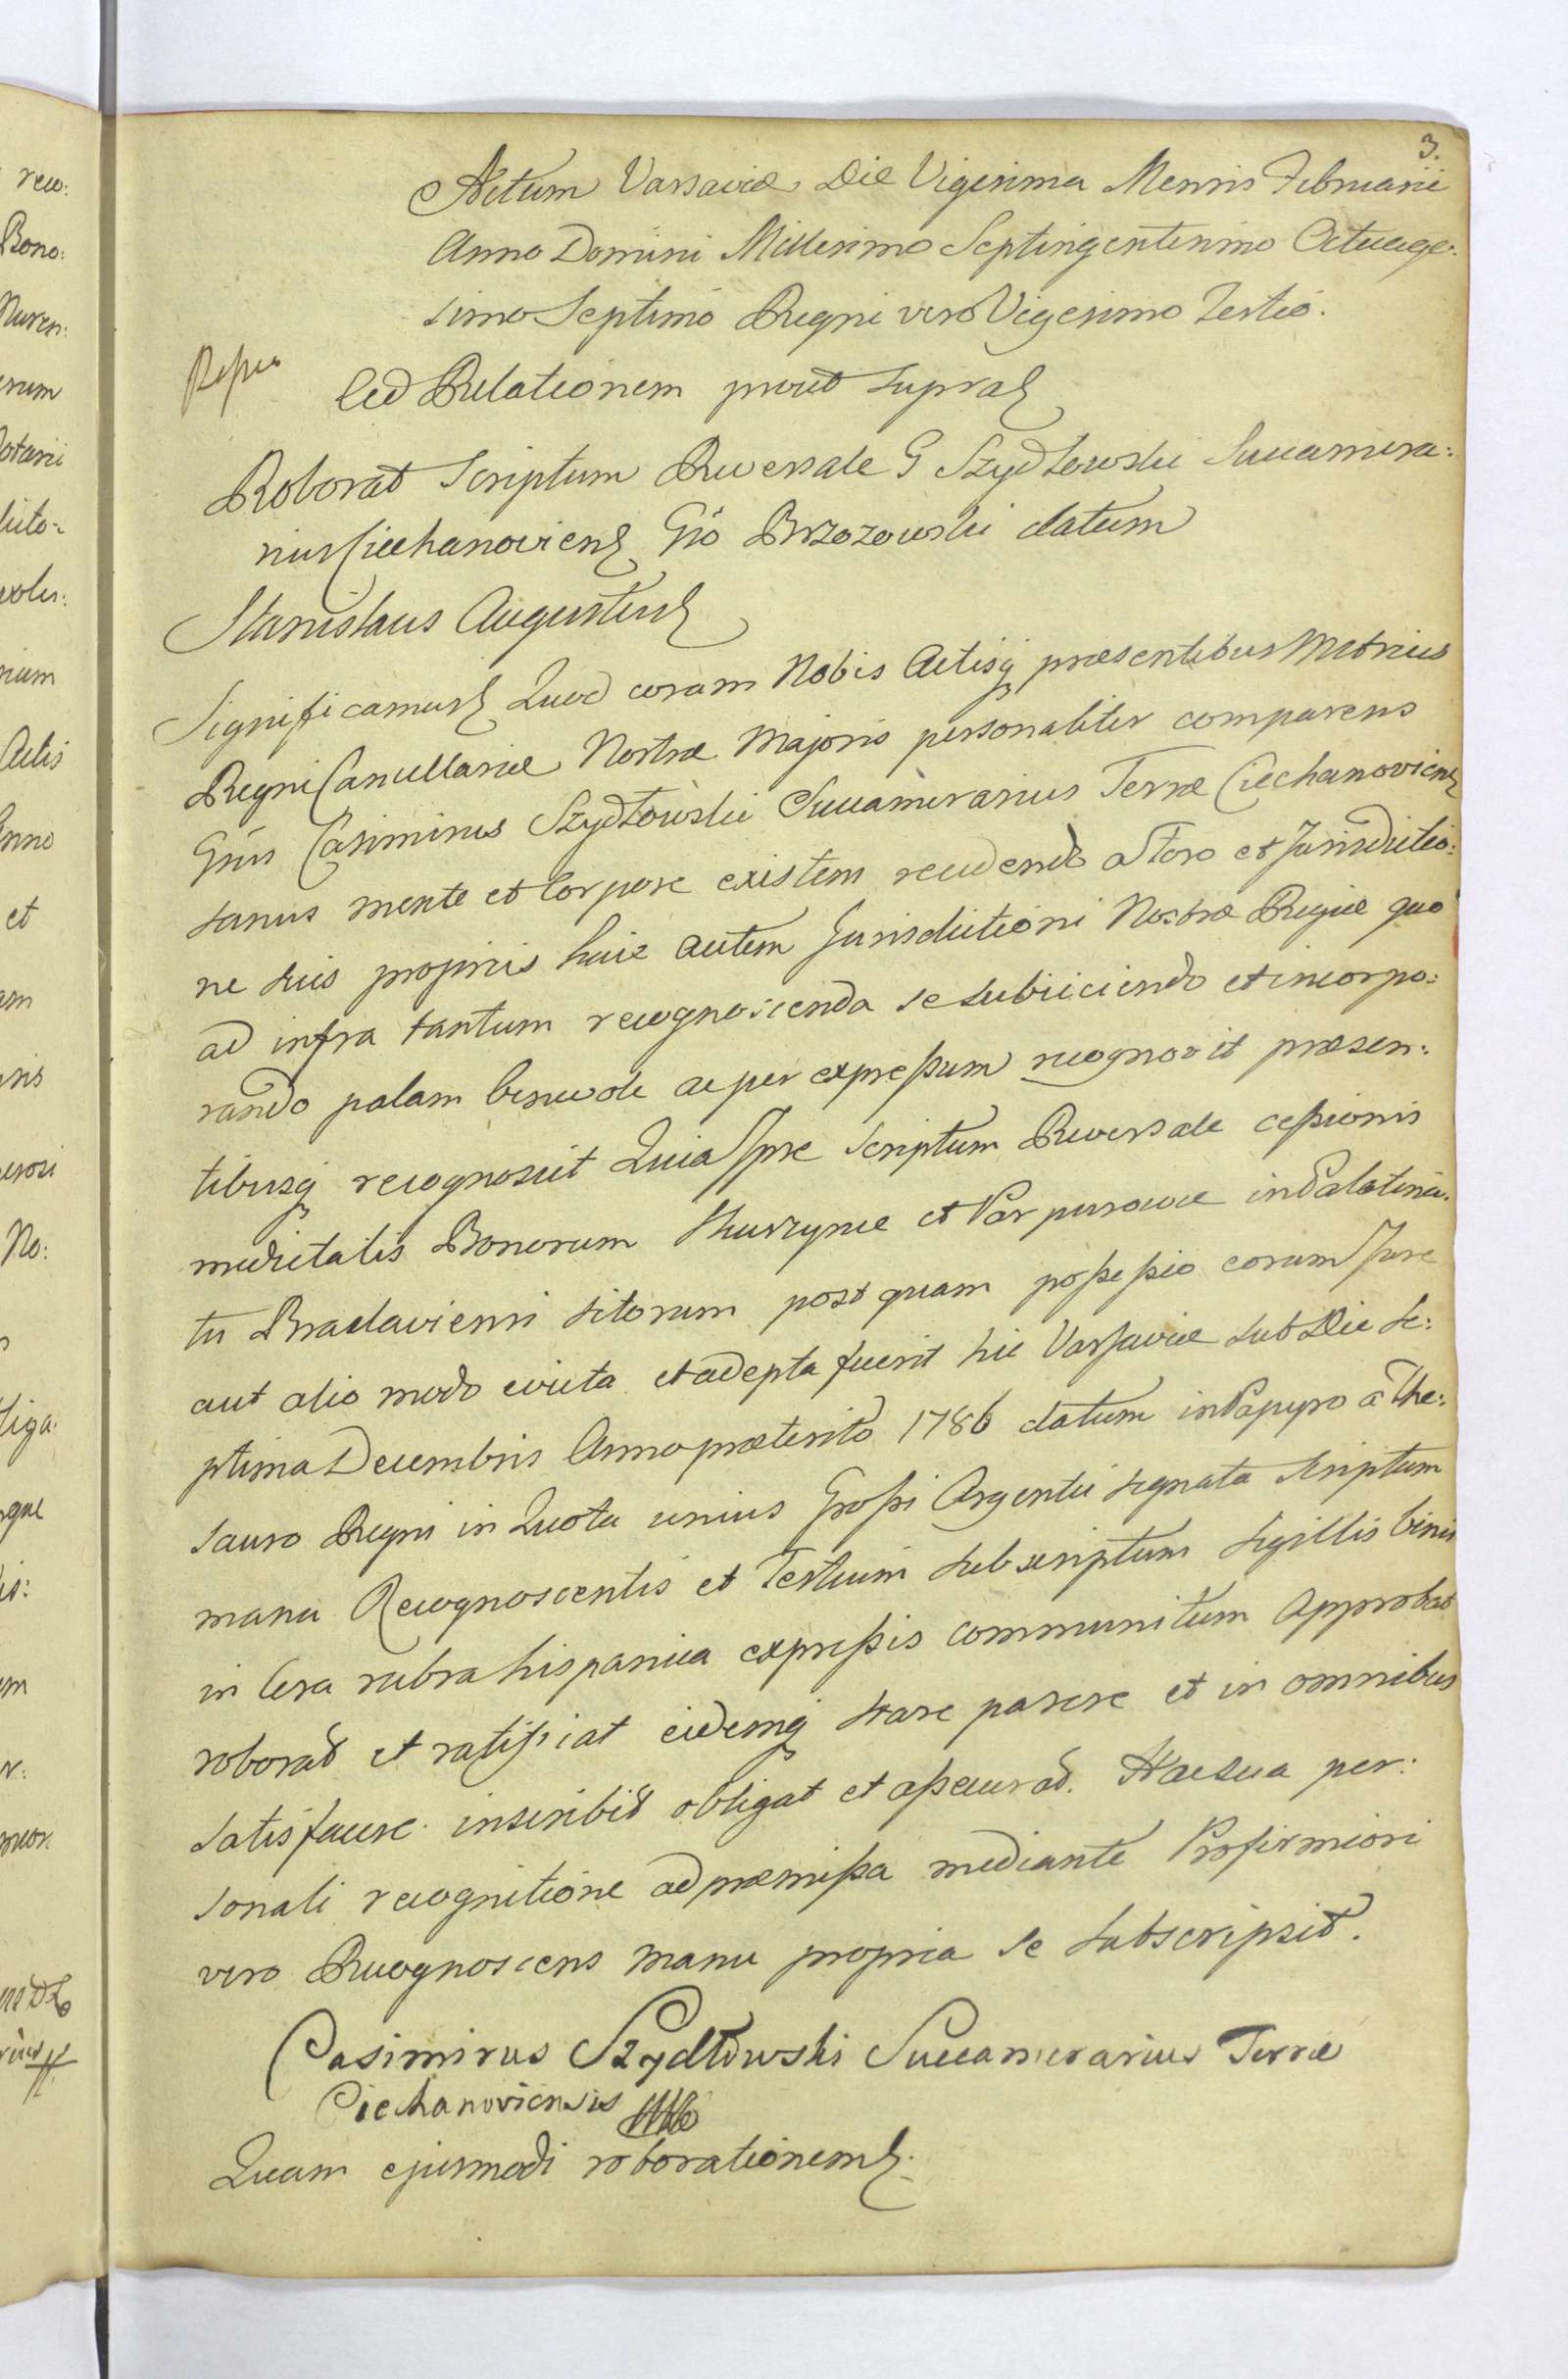 3.
Actum Varsaviæ Die Vigesima Mensis Februarii
Anno Domini Millesimo Septingentesimo Octuage:
simo Septimo Regni vero Vigesimo Tertio.
Ad Relationem prout supra
Roborat Scriptum Reversale G Szydłowski Succamera:
rius Ciechanovien Gso Brzozowski datum
Stanislaus Augustus
Significamus Quod coram Nobis Actisq præsentibus Metrices
Regni Cancellariæ Nostræ Majoris personaliter comparens
Gsus Casimirus Szydłowski Succamerarius Terræ Ciechanovien
sanus mente et Corpore existens recedendo a Foro et Jurisdictio:
ne suis propriis huic autem Jurisdictioni Nostræ Regiæ quo
ad infra tantum recognoscenda se subiiciendo et incorpo:
rando palam benevole ac per expressum recognovit præsen:
tibusq recognoscit Quia Ipse Scriptum Reversale cessionis
medietatis Bonorum et Parpurowce in Palatina:
tu Braclaviensi sitorum post quam possessio eorum Jure
aut alio modo evicta et adepta fuerit hic Varsaviæ sub Die Se:
ptima Decembris Anno præterito 1786 datum in Papyro a The:
sauro Regni in Quota unius Grossi Argentei signata scriptum
manu Recognoscentis et Testium subscriptum sigillis binis
in Cera rubra hispanica expressis communitum Approbat
roborat et ratificat eidemq stare parere et in omnibus
satisfacere inscribit obligat et assecurat. Hac sua per:
sonali recognitione ad præmissa mediante Pro firmiori
vero Recognoscens manu propria se subscripsit.
Casimirus Szydłowski Succamerarius Terræ
Ciechanoviensis
Quam ejusmodi roborationem